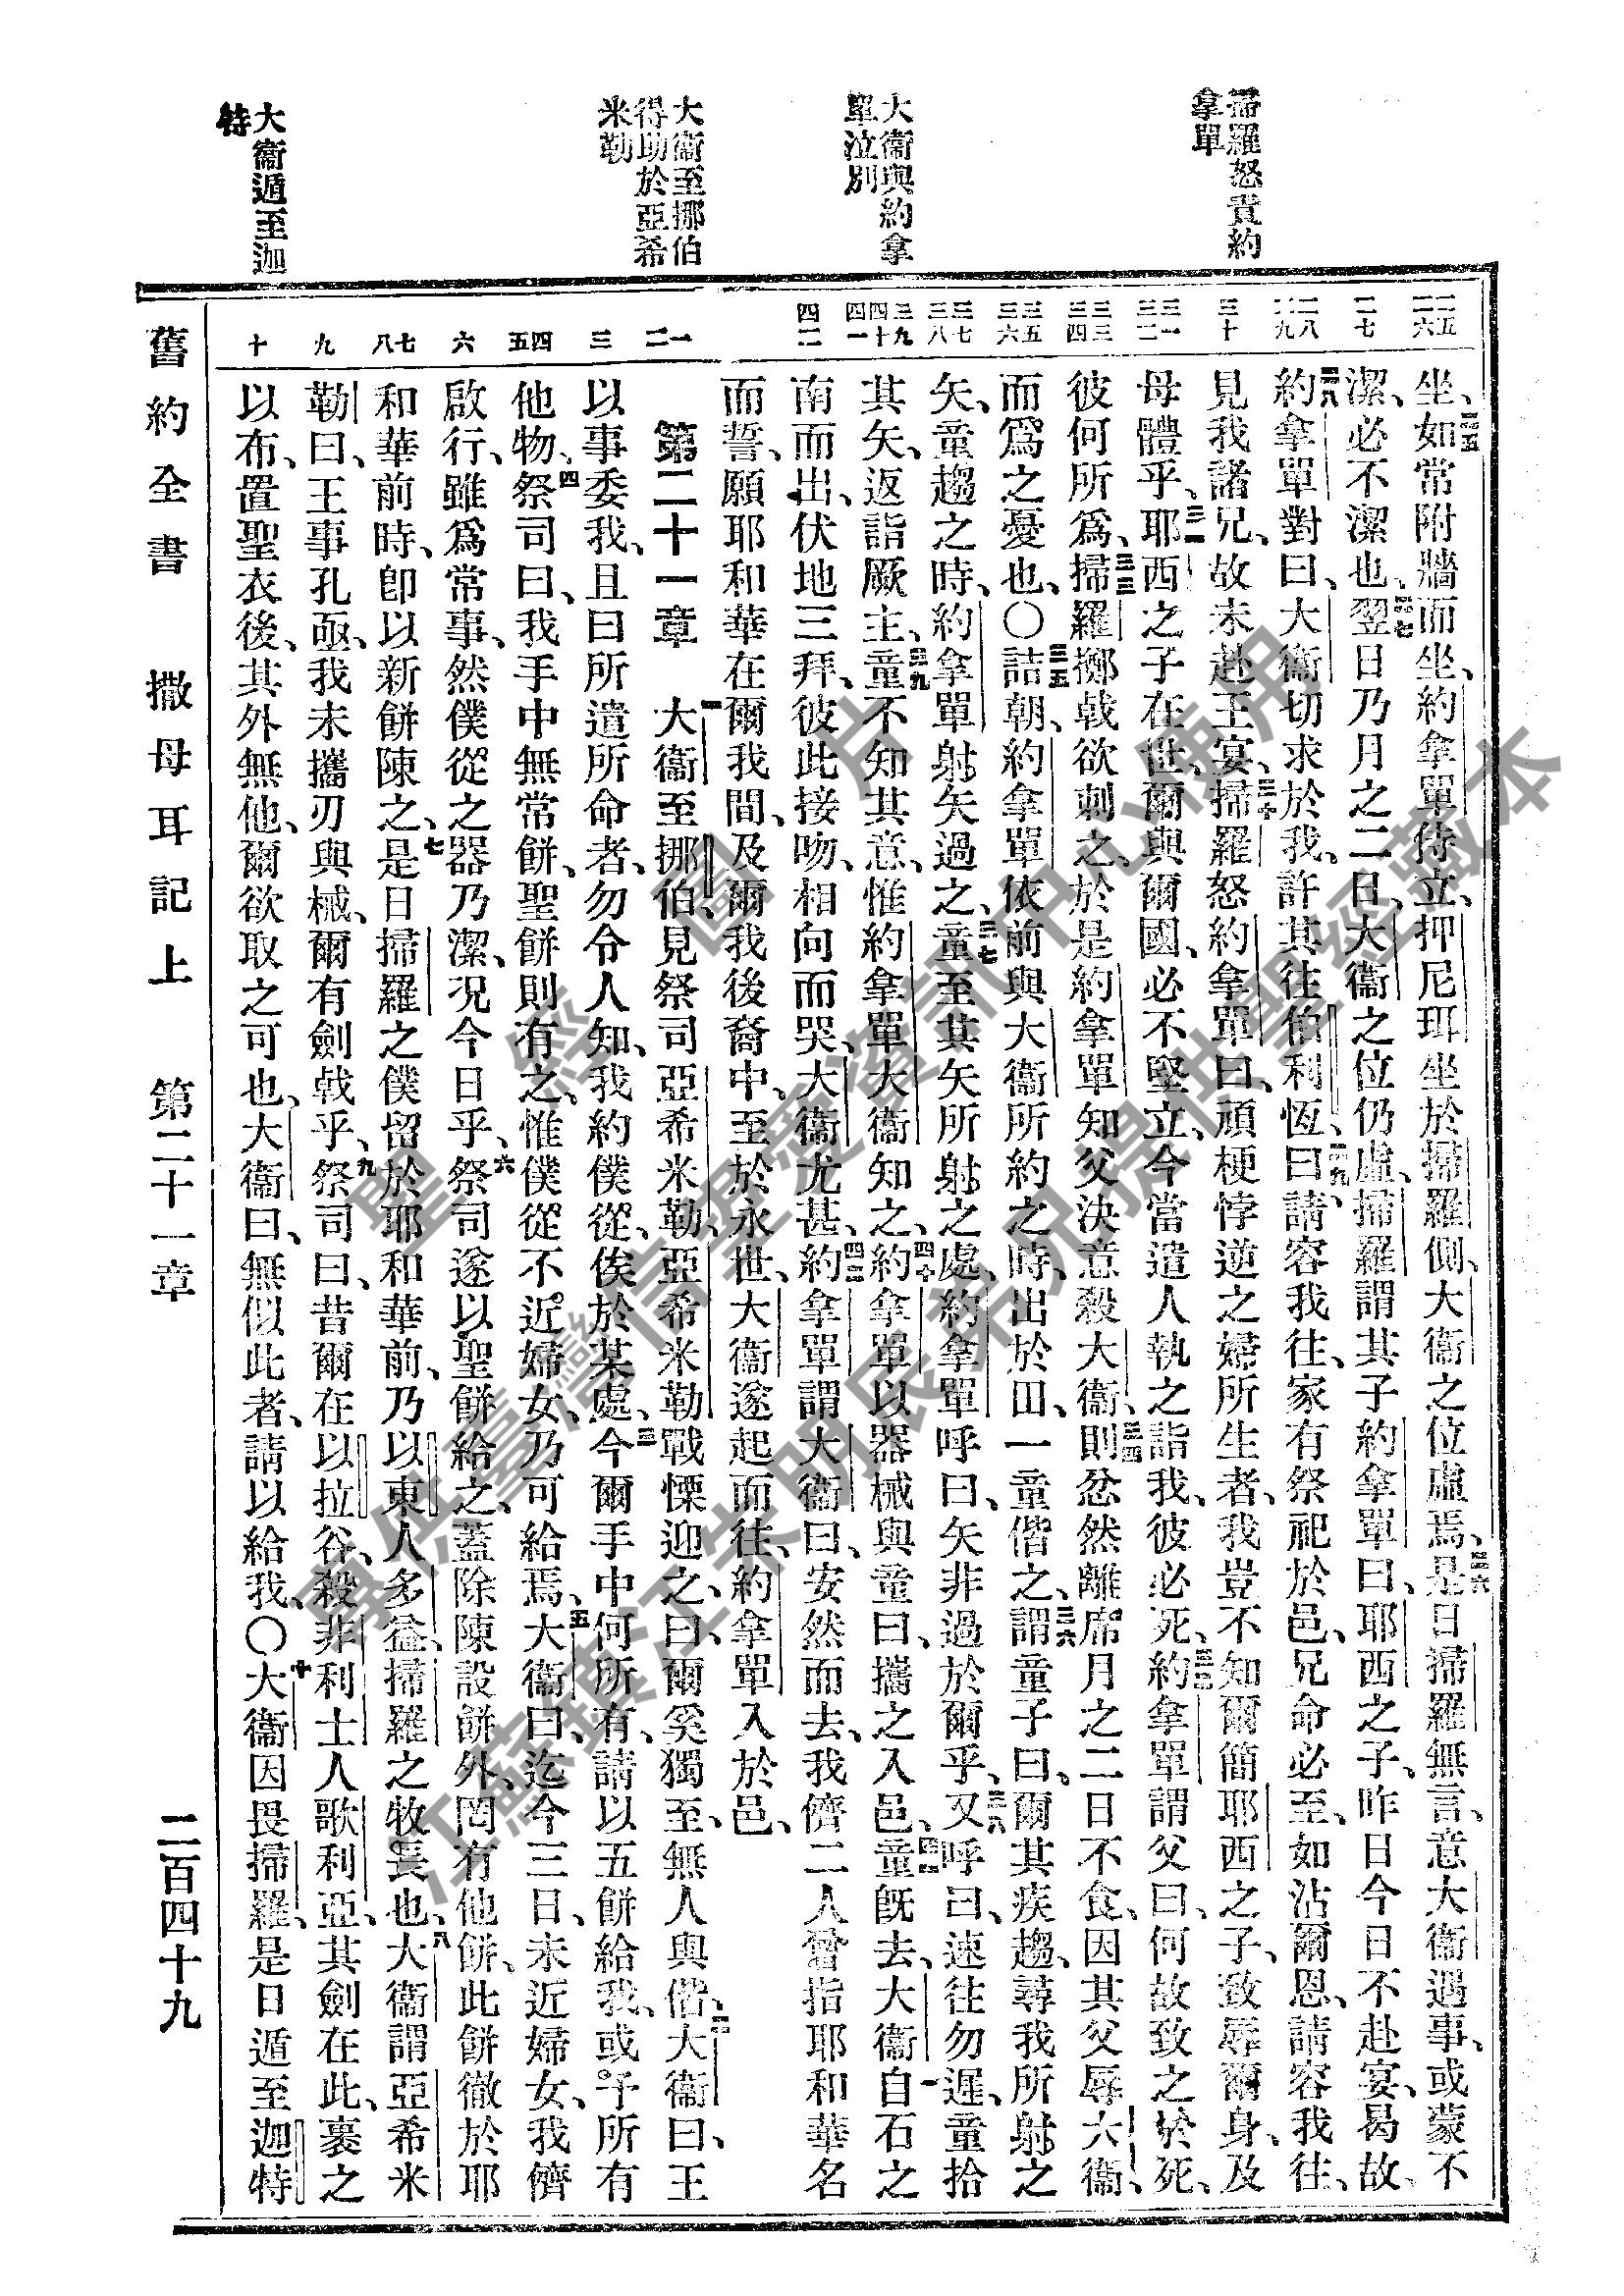 掃羅怒責約
拿單
大衞與約拿
單泣別
大衞至挪伯
得助於亞希
米勒
大衞遁至迦
特
二五 二六
二七
二八 二九
三十
三一 三二
三三 三四
三五 三六
三七 三八
三九 四十 四一
四二
一 二
三
四 五
六
七 八
九
十
坐、二五如常附牆而坐、約拿單侍立、押尼珥坐於掃羅側、大衞之位虛焉、二六是日掃羅無言、意大衞遇事、或蒙不
潔、必不潔也、二七翌日乃月之二日、大衞之位仍虛、掃羅謂其子約拿單曰、耶西之子、昨日今日不赴宴、曷故、
二八約拿單對曰、大衞切求於我、許其往伯利恆、二九曰、請容我往、家有祭祀於邑、兄命必至、如沾爾恩、請容我往、
見我諸兄、故未赴王宴、三十掃羅怒約拿單曰、頑梗悖逆之婦所生者、我豈不知爾簡耶西之子、致辱爾身、及
母體乎、三一耶西之子在世、爾與爾國、必不堅立、今當遣人執之詣我、彼必死、三二約拿單謂父曰、何故致之於死、
彼何所爲、三三掃羅擲戟欲刺之、於是約拿單知父決意殺大衞、三四則忿然離席、月之二日不食、因其父辱大衞、
而爲之憂也、〇三五詰朝、約拿單依前與大衞所約之時、出於田、一童偕之、三六謂童子曰、爾其疾趨、尋我所射之
矢、童趨之時、約拿單射矢過之、三七童至其矢所射之處、約拿單呼曰、矢非過於爾乎、三八又呼曰、速往勿遲、童拾
其矢、返詣厥主、三九童不知其意、惟約拿單大衞知之、四十約拿單以器械與童曰、攜之入邑、四一童旣去、大衞自石之
南而出、伏地三拜、彼此接吻、相向而哭、大衞尤甚、四二約拿單謂大衞曰、安然而去、我儕二人曾指耶和華名
而誓、願耶和華在爾我間、及爾我後裔中、至於永世、大衞遂起而往、約拿單入於邑、
第二十一章 一大衞至挪伯、見祭司亞希米勒、亞希米勒戰慄迎之、曰、爾奚獨至、無人與偕、二大衞曰、王
以事委我、且曰所遣所命者、勿令人知、我約僕從、俟於某處、三今爾手中何所有、請以五餅給我、或予所有
他物、四祭司曰、我手中無常餅、聖餅則有之、惟僕從不近婦女、乃可給焉、五大衞曰、迄今三日、未近婦女、我儕
啟行、雖爲常事、然僕從之器乃潔、况今日乎、六祭司遂以聖餅給之、蓋除陳設餅外、罔有他餅、此餅徹於耶
和華前時、卽以新餅陳之、七是日掃羅之僕留於耶和華前、乃以東人多益、掃羅之牧長也、八大衞謂亞希米
勒曰、王事孔亟、我未攜刃與械、爾有劍戟乎、九祭司曰、昔爾在以拉谷、殺非利士人歌利亞、其劍在此、裹之
以布、置聖衣後、其外無他、爾欲取之可也、大衞曰、無似此者、請以給我、〇十大衞因畏掃羅、是日遁至迦特
舊約全書 撒母耳記上 第二十一章 二百四十九
聖經圖片
專供臺灣信望愛資訊中心使用
江蘇鎮江朱明民弟兄提供聖經藏本